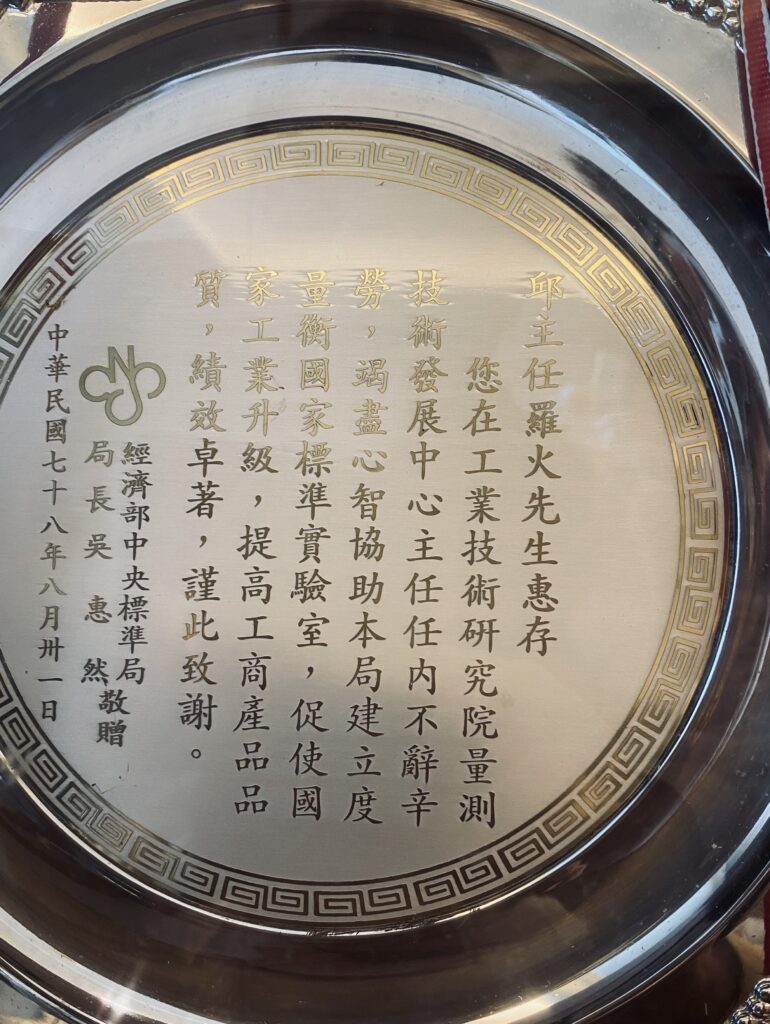 邱主任羅火先生惠存
您在工業技術研究院量測
技術發展中心主任任內不辭辛
勞，竭盡心智協助本局建立度
量衡國家標準實驗室，促使國
家工業升級，提高工商產品品
質，績效卓著，謹此致謝。
經濟部中央標準局
局長吳惠然敬贈
中華民國七十八年八月卅一日